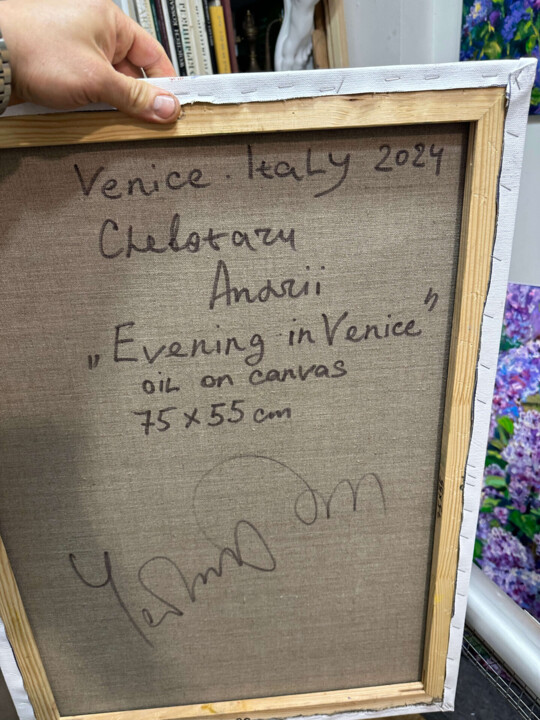 Venice. Italy 2024
Chebotaru
Andrii
„Evening in Venice”
oil on canvas
75 x 55 cm